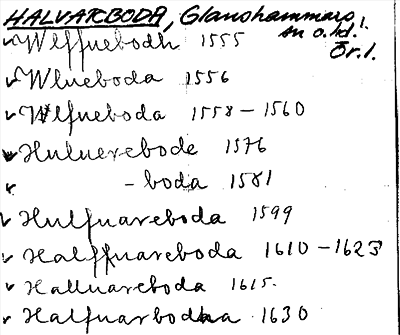 HALVARBODA, Glanshammars
sn o. hd.
Ör. l.
✓ Wlffuebodh 1555
✓ Wlueboda 1556
✓ Wlfueboda 1558 – 1560
✓ Huluerebode 1576
✓ - boda 1581
✓ Hulfuareboda 1599
✓ Halffuareboda 1610 – 1623
✓ Halluareboda 1615.
✓ Halfuarbodha 1630